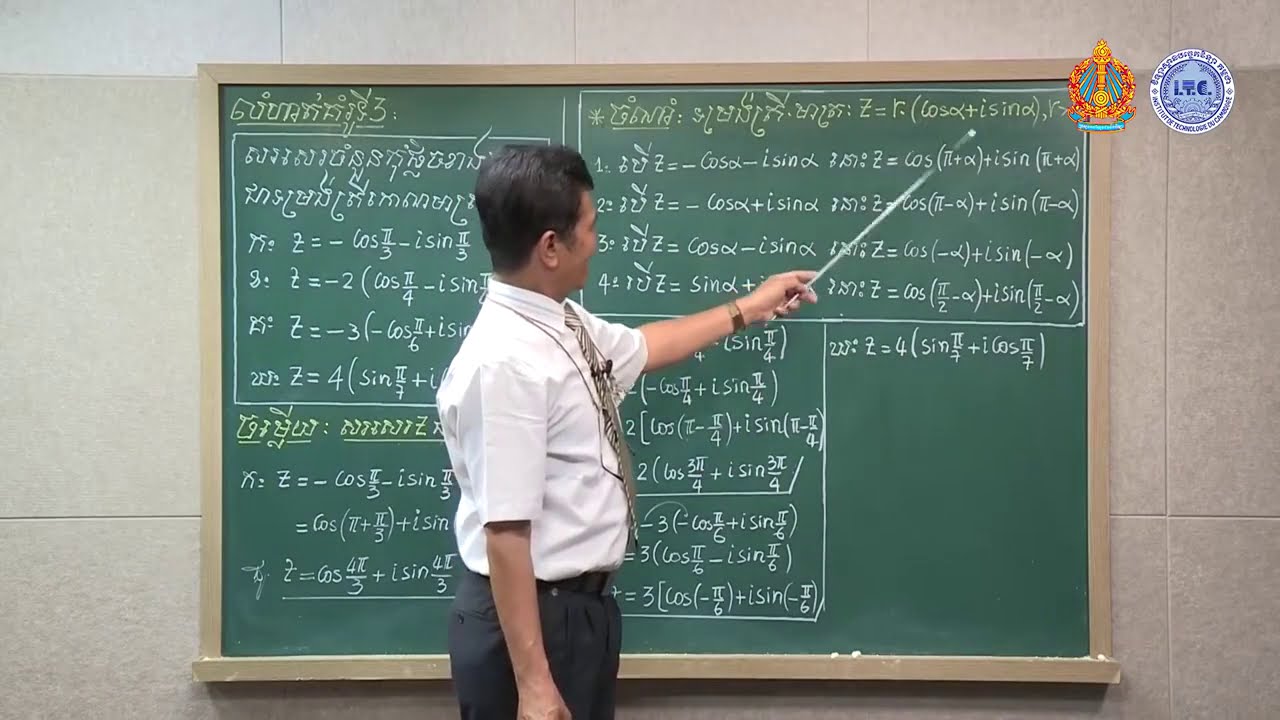 លំហាត់គំរូទី3:
សរសេរចំនួនកុំផ្លិចខាង
ជាទម្រង់ត្រីកោណមាត្រ
ក: Z = - cos π/3 - i sin π/3
ខ: Z = -2 (cos π/4 - i sin π/4
គ: Z = -3 (-cos π/6 + i sin
ឃ: Z = 4 (sin π/7 + i
ចម្លើយ: សរសេរ Z
ក: Z = - cos π/3 - i sin π/3
= cos(π + π/3) + i sin
ដូ Z = cos 4π/3 + i sin 4π/3
* ចំណាំ: ទម្រង់ត្រីកោណមាត្រ: Z = r.(cosα + i sinα), r
1: បើ Z = -cosα - i sinα នោះ Z = cos(π+α) + i sin(π+α)
2: បើ Z = -cosα + i sinα នោះ Z = cos(π-α) + i sin(π-α)
3: បើ Z = cosα - i sinα នោះ Z = cos(-α) + i sin(-α)
4: បើ Z = sinα + នោះ Z = cos(π/2 - α) + i sin(π/2 - α)
i sin π/4)
(-cos π/4 + i sin π/4)
2 [cos(π - π/4) + i sin(π - π/4)
2 (cos 3π/4 + i sin 3π/4
-3 (-cos π/6 + i sin π/6)
= 3 (cos π/6 - i sin π/6)
= 3 [cos(-π/6) + i sin(-π/6)
ឃ: Z = 4 (sin π/7 + i cos π/7)
I.T.C.
INSTITUT DE TECHNOLOGIE DU CAMBODGE